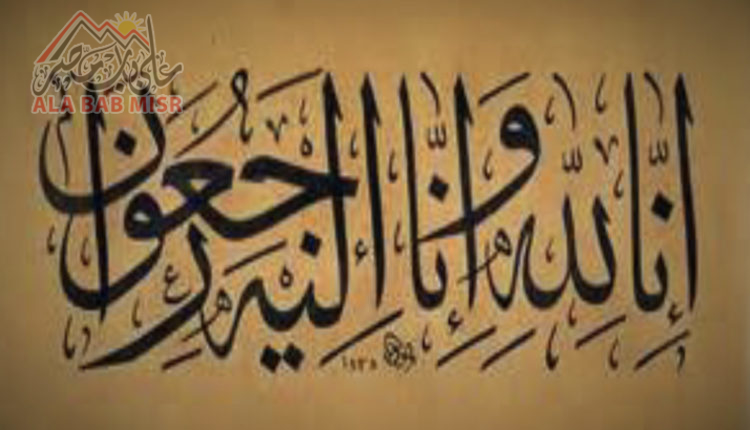 على باب مصر
ALA BAB MISR
إنا لله وإنا إليه راجعون